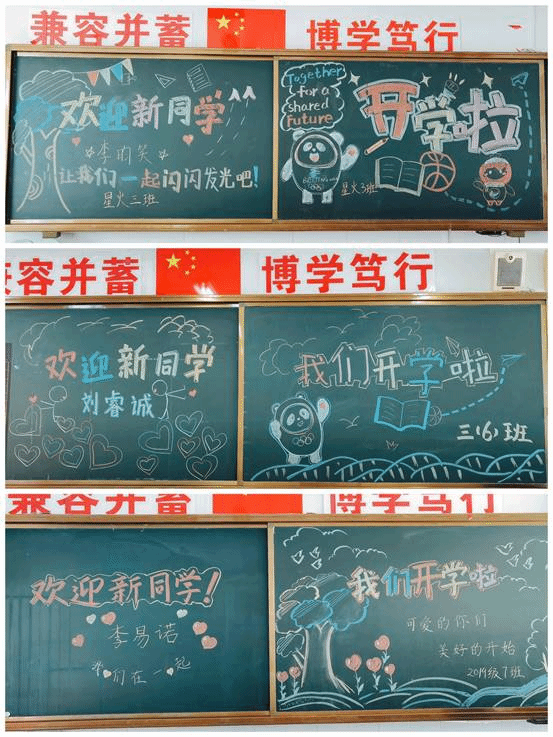 兼容并蓄 博学笃行
欢迎新同学
让我们一起闪闪发光吧!
星火三班
Together
for a
shared
Future
开学啦
BEIJING
星火3班
兼容并蓄 博学笃行
欢迎新同学
刘睿诚
我们开学啦
三(6)班
兼容并蓄 博学笃行
欢迎新同学!
李易诺
我们在一起
我们开学啦
可爱的你们
美好的开始
2019级7班